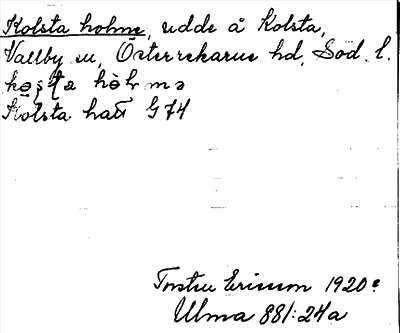 Kolsta holme, udde å Kolsta,
Vallby sn, Österrekarne hd, Söd. l.
Kolsta hatt G 74
Torsten Ericsson 1920e
Ulma 881:24a